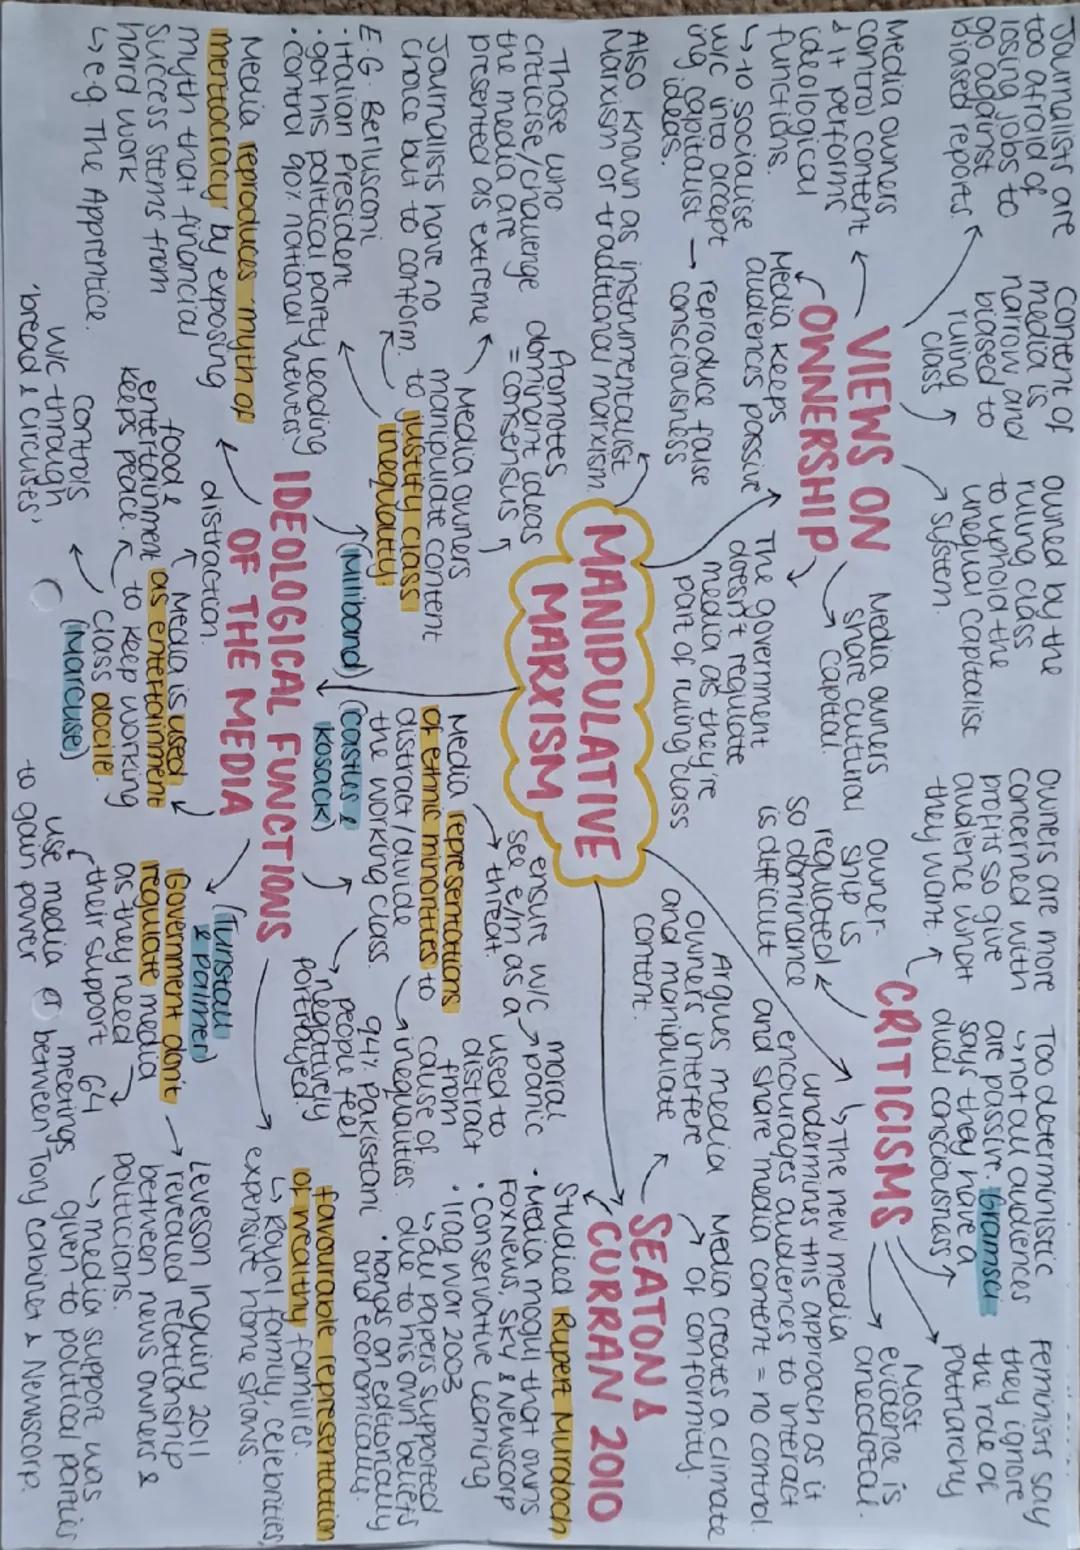 MANIPULATIVE
MARXISM
Also known as instrumentalist
Marxism or traditional marxism
VIEWS ON
OWNERSHIP
Journalists are
too afraid of
losing jobs to
go against
biased reports
Content of
media is
narrow and
biased to
ruling
class
Owned by the
ruling class
to uphold the
unequal capitalist
system.
Media owners
control content
& it performs
ideological
functions.
↳ to socialise
w/c into accept
ing capitalist
ideas.
→ reproduce false
consciousness
Media keeps
audiences passive
Media owners
share cultural
capital.
The government
doesn't regulate
media as they're
part of ruling class
CRITICISMS
Owners are more
concerned with
profits so give
audience what
they want
Too deterministic
↳ not all audiences
are passive. Gramsci
says they have a
dual consciousness
Feminists say
they ignore
the role of
patriarchy
owner-
ship is
regulated
so dominance
is difficult
Most
evidence is
anecdotal.
↳ The new media
undermines this approach as it
encourages audiences to interact
and share media content = no control.
SEATON &
CURRAN 2010
Argues media
owners interfere
and manipulate
content.
Media creates a climate
of conformity.
Studied Rupert Murdoch
• Media mogul that owns
FoxNews, Sky & Newscorp
• Conservative leaning
• Iraq war 2003
↳ all papers supported
due to his own beliefs
• hands on editorially
and economically.
IDEOLOGICAL FUNCTIONS
OF THE MEDIA
Those who
criticise/challenge
the media are
presented as extreme
Promotes
dominant ideas
= consensus
Media owners
manipulate content
to justify class
inequality.
(Miliband)
Journalists have no
choice but to conform.
E.G. Berlusconi
• Italian President
• got his political party leading
• control 90% national viewers
Media representations
of ethnic minorities to
distract/divide
the working class.
(Castles &
Kosack)
ensure w/c
see e/m as a
threat.
moral
panic
used to
distract
from
cause of
inequalities.
94% Pakistani
people feel
negatively
portrayed.
Media reproduces 'myth of
meritocracy' by exposing
myth that financial
success stems from
hard work
↳ e.g. The Apprentice.
Media is used
as entertainment
to keep working
class docile.
(Marcuse)
distraction.
food &
entertainment
keeps peace.
controls
w/c through
'bread & circuses'
(Tunstall
& Palmer)
Government don't
regulate media
as they need
their support
use media
to gain power
Leveson Inquiry 2011
revealed relationship
between news owners &
politicians.
↳ media support was
given to political parties
64
meetings
between Tory cabinet & Newscorp.
favourable representation
of wealthy families
↳ Royal family, celebrities,
expensive home shows.